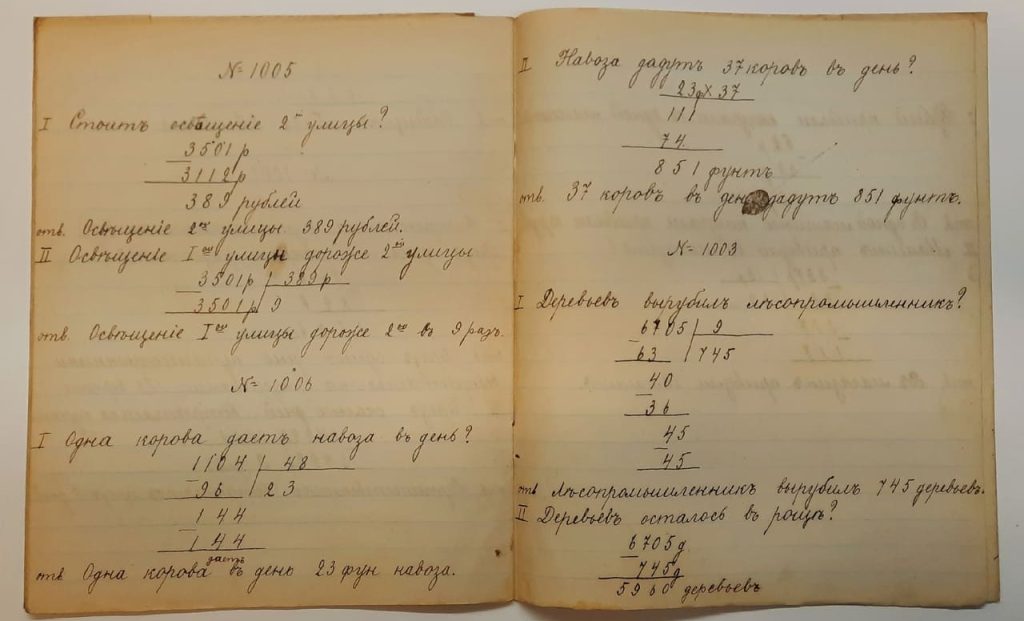 № 1005
I Стоитъ освѣщеніе 2ой улицы?
3501 р
3112 р
389 рублей
отв. Освѣщеніе 2ой улицы 389 рублей.
II Освѣщеніе Iой улицы дороже 2ой улицы
3501 р 389 р
3501 р 9
отв. Освѣщеніе Iой улицы дороже 2ой въ 9 разъ.
№ 1006
I Одна корова даетъ навоза въ день?
1104 48
96 23
144
144
даетъ
отв Одна корова въ день 23 фун навоза.
II Навоза дадутъ 37 коровъ въ день?
23ф × 37
111
74
851 фунтъ
отв. 37 коровъ въ день дадутъ 851 фунтъ.
№ 1003
I Деревьевъ вырубилъ лѣсопромышленникъ?
6705 9
63 745
40
36
45
45
отв лѣсопромышленникъ вырубилъ 745 деревьевъ.
II Деревьевъ осталось въ рощѣ?
6705 д
745 д
5960 деревьевъ